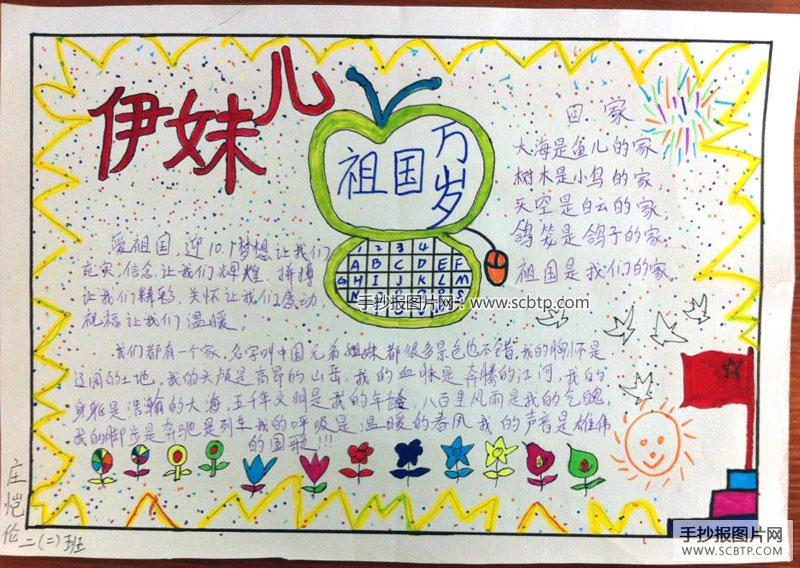 伊妹儿
祖国万岁
1 2 3 4
A B C D E F
G H I J K L M
回家
大海是鱼儿的家,
树木是小鸟的家,
天空是白云的家,
鸽笼是鸽子的家,
祖国是我们的家。
爱祖国,迎10.1梦想让我们
充实,信念让我们辉煌,拼搏
让我们精彩,关怀让我们感动,
祝福让我们温暖。
手抄报图片网:www.scbtp.com
我们都有一个家,名字叫中国兄弟姐妹都很多景色也不错,我的胸怀是
辽阔的土地,我的头颅是高昂的山岳,我的血脉是奔腾的江河,我的
身躯是浩瀚的大海,五千年文明是我的年龄,八百里风雨是我的气魄,
我的脚步是奔驰是列车我的呼吸是温暖的春风我的声音是雄伟
的国歌!!!
庄恺伦
二(二)班
手抄报图片网
WWW.SCBTP.COM